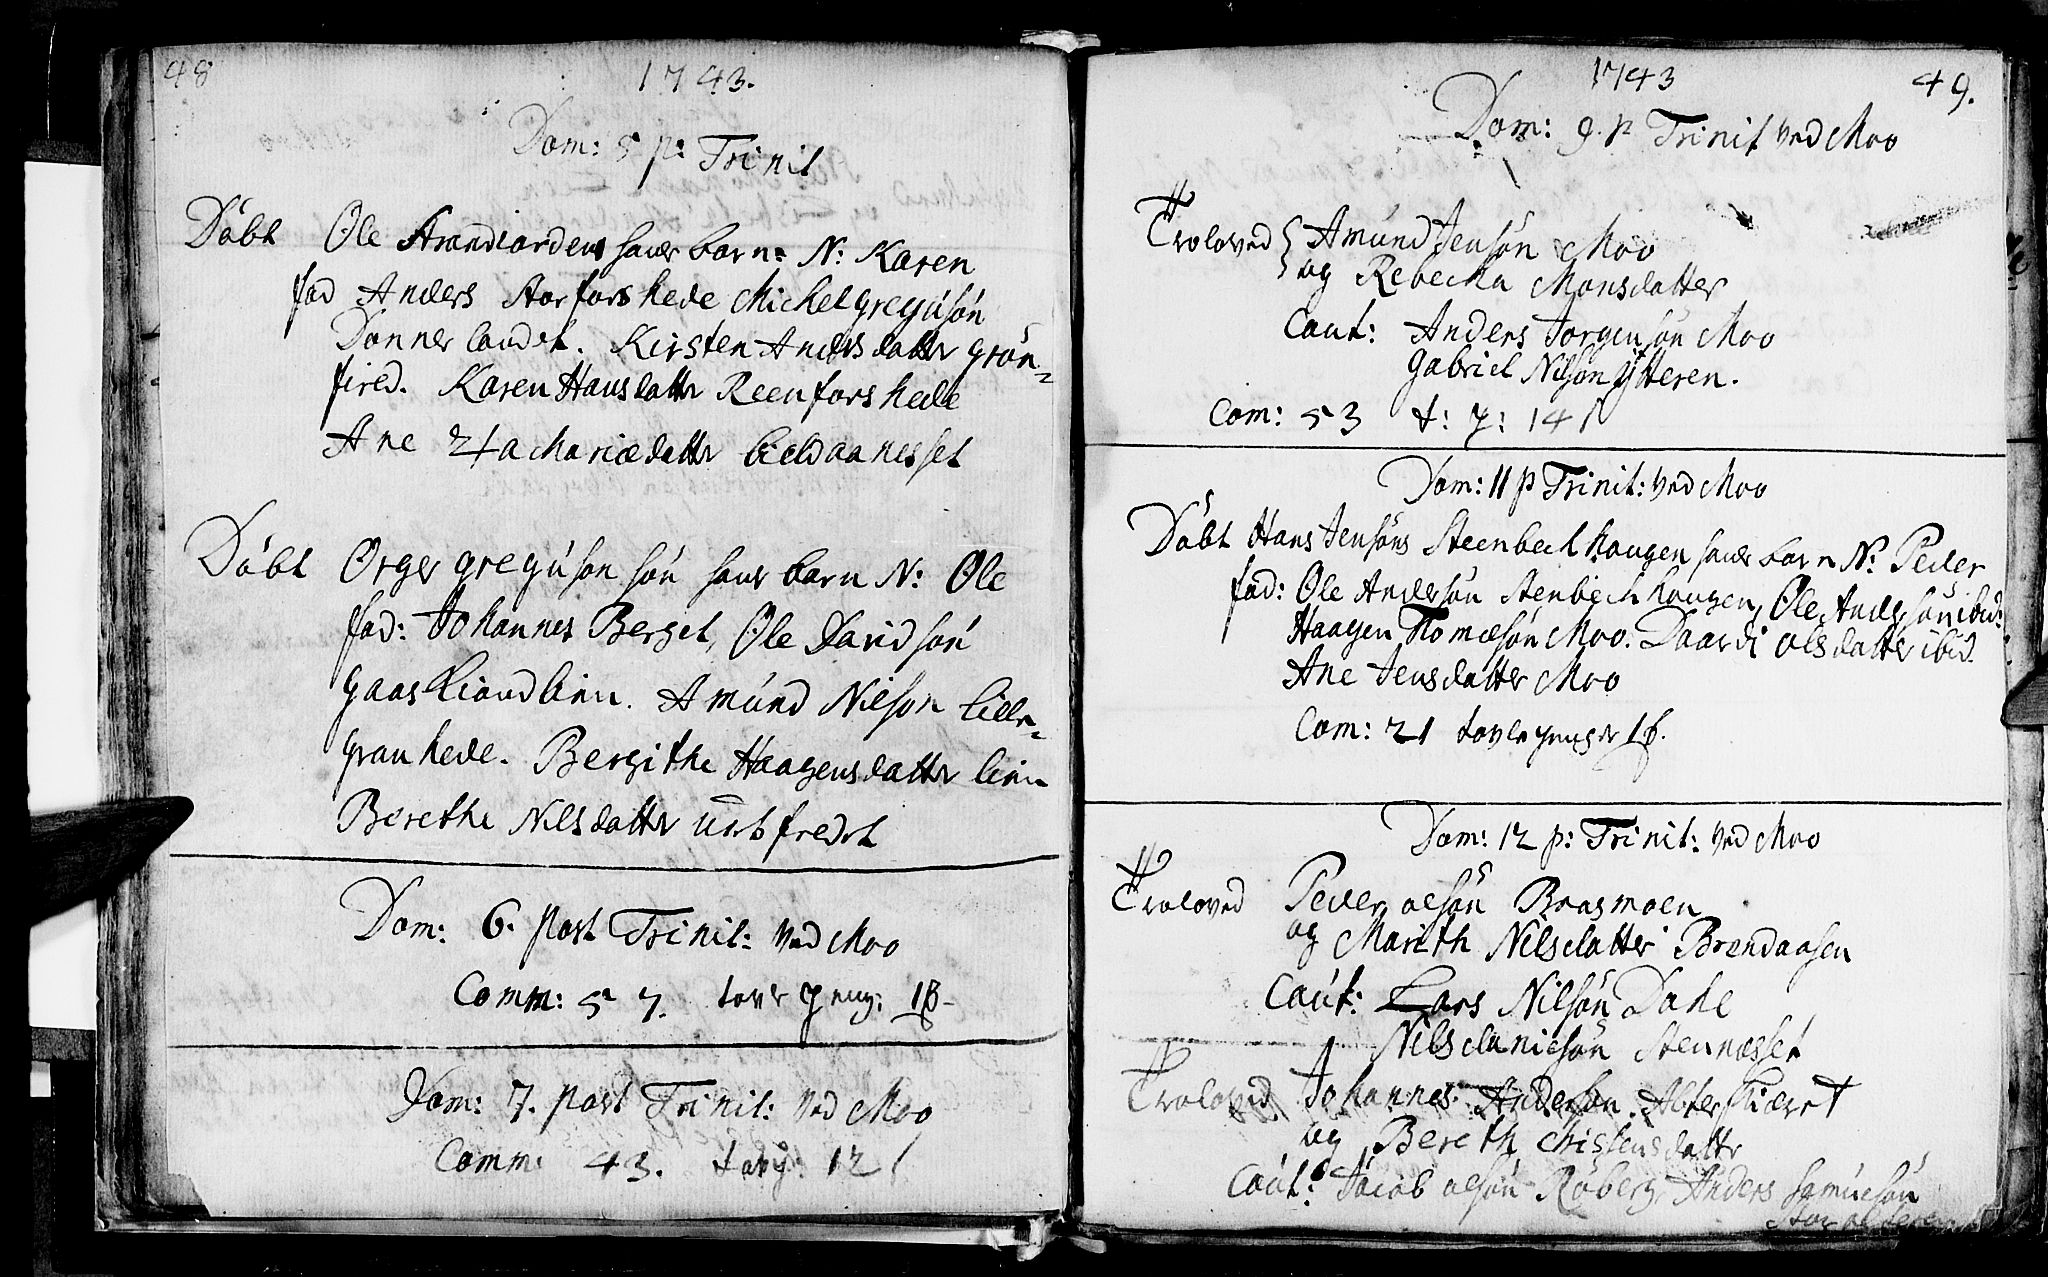 48
1743.
Dom: 5 p: Trinit
Döbt Ole Strandiordens haver barn: N: Karen
fad Anders Storforshede Michel greguson
Dønnerlandet. Kirsten Andersdatter grön-
fired. Karen Hansdatter Reenforshede
Ane Zachariædatter
Döbt Orger greguson sön haver barn N: Ole
fad: Johannes Berget, Ole Davidsön
Amund Nilson Lille-
granhede. Bergithe Haagensdatter
Berethe Nilsdatter
Dom: 6. post Trinit: ved Moo
Comm: 57. tavr peng: 1ß-
Dom: 7. post Trinit: ved Moo
Comm: 43. tavlp: 12
1743
49.
Dom: 9. p Trinit ved Moo
Troloved Amund Jensön Moo
og Rebecka Monsdatter
Caut: Anders Jorgensön Moo
Gabriel Nilsön Ytteren.
Com: 53 t: p: 14
Dom: 11 p Trinit: ved Moo
Döbt Hans Jensöns Steenbechhaugen haver barn N: Peder
fad: Ole Andersön Stenbechhaugen, Ole Andersön ibid:
Haagen Thomesön Moo. Daardi olsdatter ibid.
Ane Jensdatter Moo
Com: 21 tavle penger 1ß.
Dom: 12 p: Trinit: ved Moo
Troloved Peder olsön Braasmoen
og Marith Nilsdatter Brendaasen
Caut: Lars Nilsön Dahl
Nils danielsön Stennesset
Troloved Johannes Andersön Alterskiæret
og Bereth Christensdatter
Caut: Jacob olsön Röberg Anders Samuelsön
Storalteren